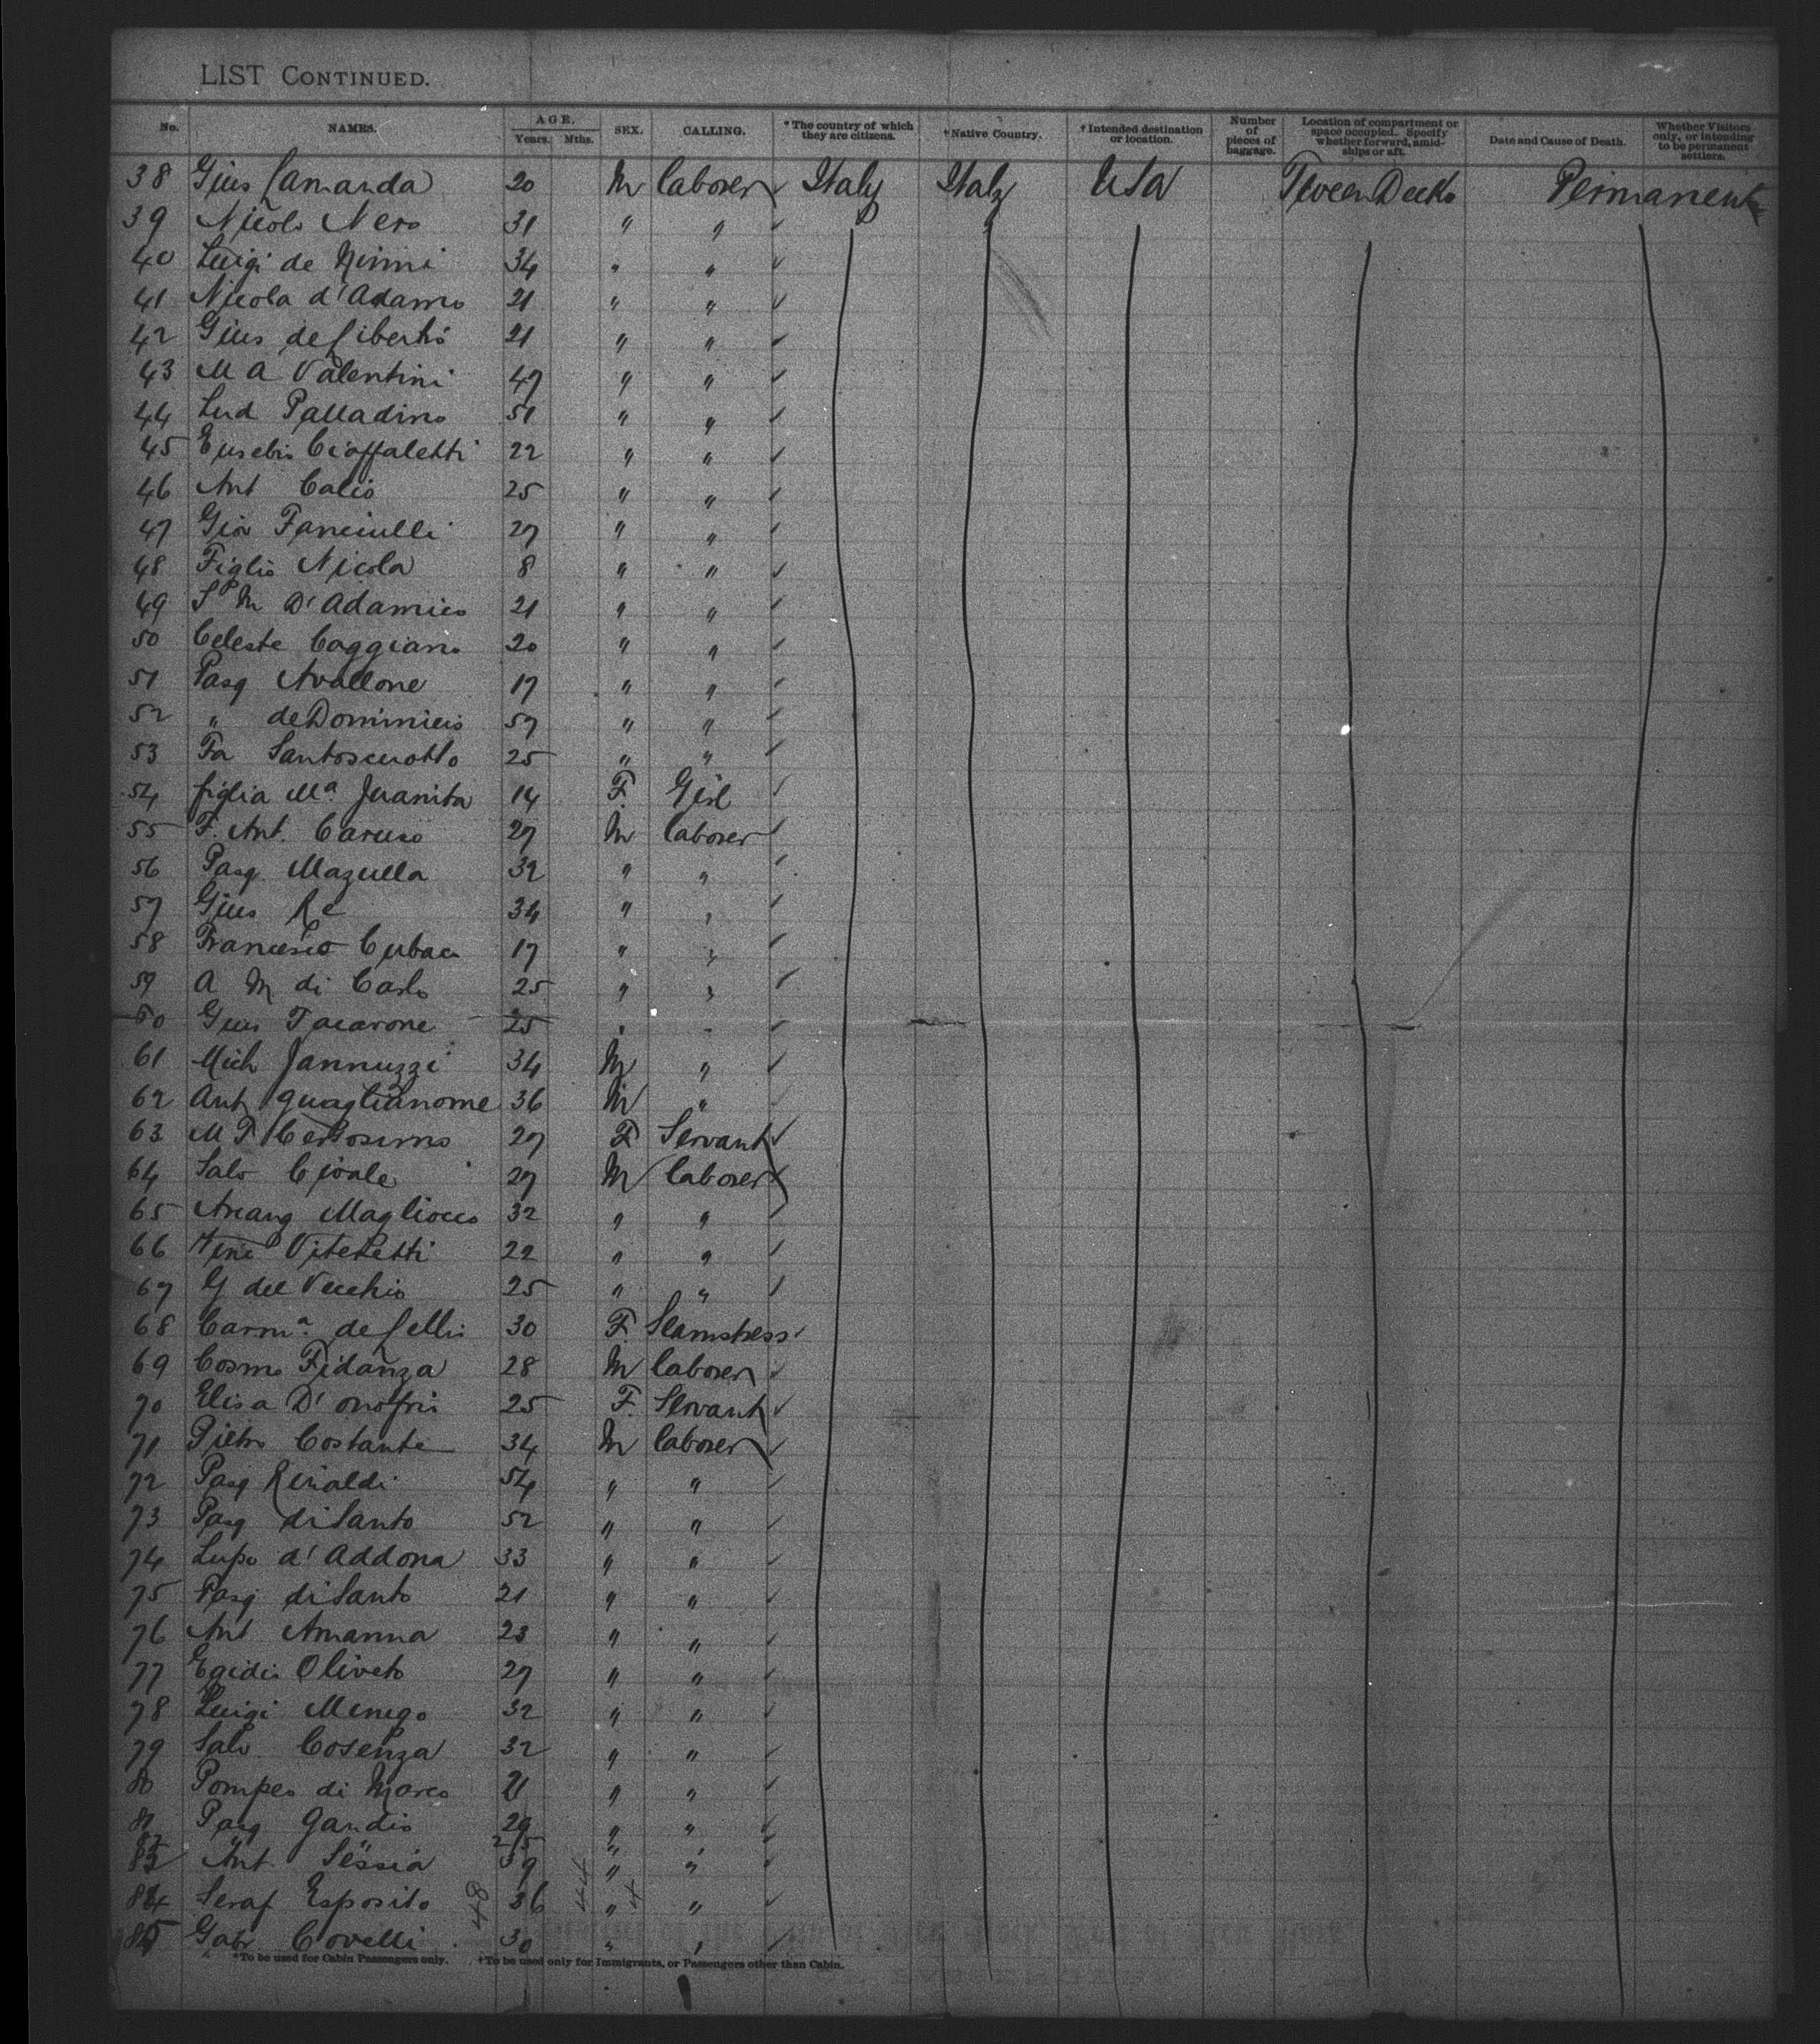 LIST CONTINUED.
No. NAMES. AGE. Years. Mths. SEX. CALLING. *The country of which they are citizens. †Native Country. †Intended destination or location. Number of pieces of baggage. Location of compartment or space occupied. Specify whether forward, amidships or aft. Date and Cause of Death. Whether Visitors only, or intending to be permanent settlers.
38 Gius Lamanda 20 M laborer ✓ Italy Italy USA Tween Decks Permanent
39 Nicolo Nero 31 " " ✓
40 Luigi de Ninni 34 " " ✓
41 Nicola d'Adamo 21 " " ✓
42 Gius de Liberto 21 " " ✓
43 M A Valentini 47 " " ✓
44 Lud Palladino 51 " " ✓
45 Eusebio Cioffaletti 22 " " ✓
46 Ant Calio 25 " " ✓
47 Gio Fanciulli 27 " " ✓
48 Figlio Nicola 8 " " ✓
49 M D'Adamico 21 " " ✓
50 Celeste Caggiano 20 " " ✓
51 Pasq Avallone 17 " " ✓
52 " de Dominicis 57 " " ✓
53 Fa Santoscuotto 25 " " ✓
54 figlia Ma. Juanita 14 F. Girl ✓
55 F. Ant. Caruso 27 M laborer ✓
56 Pasq. Mazulla 32 " " ✓
57 Gius Re 34 " " ✓
58 Francesco 17 " " ✓
59 A M di Carlo 25 " " ✓
60 Gius Tacarone 25 " " ✓
61 Mich Jannuzzi 34 M " ✓
62 Ant Quaglianome 36 M " ✓
63 M T Certosimo 27 F Servant ✓
64 Salv Civale 27 M laborer ✓
65 Arcang Magliocco 32 " " ✓
66 Viteretti 22 " " ✓
67 G del Vecchio 25 " " ✓
68 Carma. de Lellis 30 F. Seamstress ✓
69 Cosmo Fidanza 28 M laborer ✓
70 Elisa D'onofrio 25 F. Servant ✓
71 Pietro Costante 34 M laborer ✓
72 Pasq Rinaldi 54 " " ✓
73 Pasq di Santo 52 " " ✓
74 Lupo d'Addona 33 " " ✓
75 Pasq di Santo 21 " " ✓
76 Ant Amanna 23 " " ✓
77 Egidio Oliveto 27 " " ✓
78 Luigi Menigo 32 " " ✓
79 Salv. Cosenza 32 " " ✓
80 Pompeo di Marco 21 " " ✓
81 Pasq Gandio 29 " " ✓
83 Ant. Sessia 39 " " ✓
84 Seraf Esposito 48 36 44 " 4 " ✓
85 Gabr Covelli 30 " " ✓
*To be used for Cabin Passengers only. †To be used only for Immigrants, or Passengers other than Cabin.